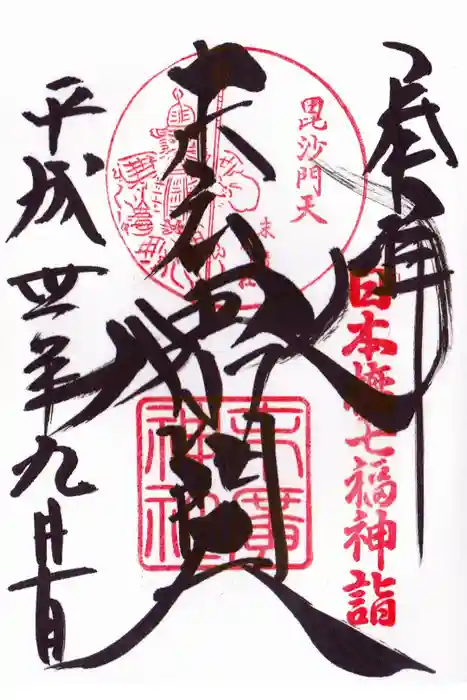 奉拝
日本橋七福神詣
毘沙門天
末廣神社
末廣神社
平成廿四年九月十日